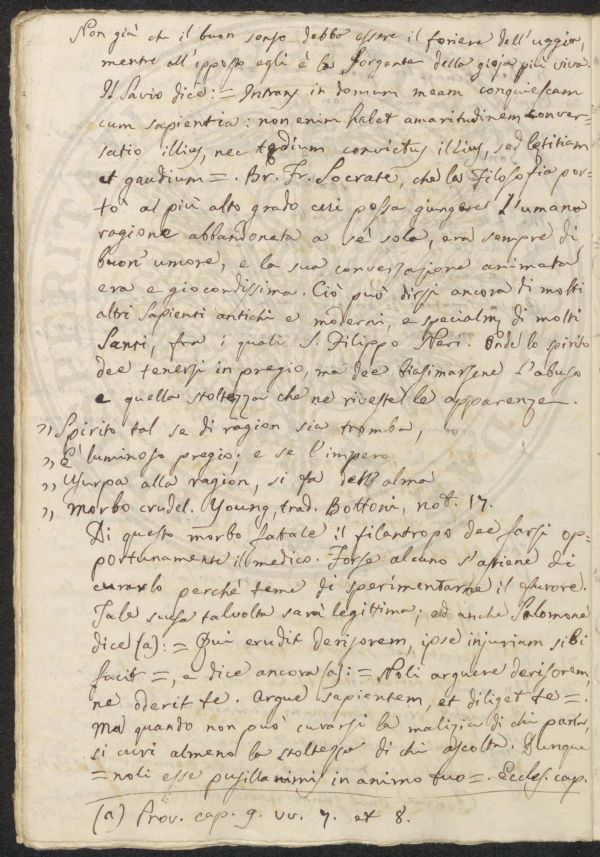 Non già che il buon senso debba essere il foriere dell'uggia,
mentre all'opposto egli è la sorgente della gioja più viva.
Il Savio dice: = Intrans in domum meam conquiescam
cum sapientia: non enim habet amaritudinem conver-
satio illius, nec tędium convictus illius, sed lętitiam
et gaudium =. Socrate, che la Filosofia por-
tò al più alto grado cui possa giungere l'umana
ragione abbandonata a sè sola, era sempre di
buon umore, e la sua conversazione animata
era e giocondissima. Ciò può dirsi ancora di molti
altri Sapienti antichi e moderni, e specialm. di molti
Santi, fra i quali S. Filippo Neri. Onde lo spirito
dee tenersi in pregio, ma dee biasimarsene l'abuso
e quella stoltezza che ne riveste le apparenze.
„ Spirito tal se di ragion sia tromba,
„ E' luminoso pregio; e se l'impero
„ Usurpa alla ragion, si fa dell'alma
„ Morbo crudel. Young, trad. Bottoni, not. 17.
Di questo morbo fatale il filantropo dee farsi op-
portunamente il medico. Forse alcuno s'astiene di
curarlo perchè teme di sperimentarne il furore.
Tale scusa talvolta sarà legittima; ed anche Salomone
dice (a): = Qui erudit derisorem, ipse injuriam sibi
facit =, e dice ancora (a): = Noli arguere derisorem,
ne oderit te. Argue sapientem, et diliget te =.
Ma quando non può curarsi la malizia di chi parla,
si curi almeno la stoltezza di chi ascolta. Dunque
= noli esse pusillanimis in animo tuo =. Eccles. cap.
(a) Prov. cap. 9. vv. 7. et 8.